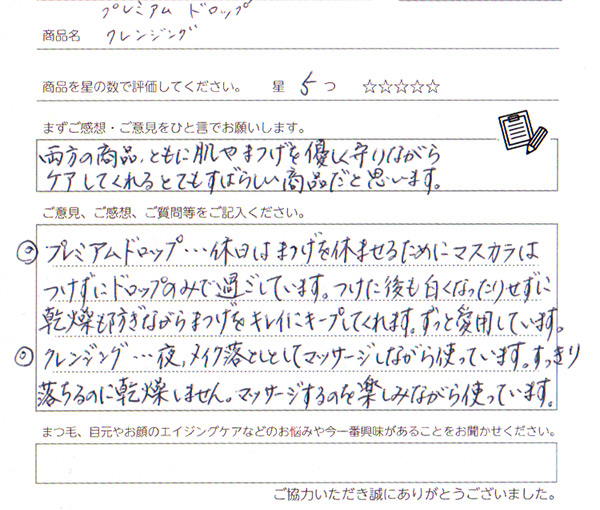 プレミアム ドロップ
商品名 クレンジング
商品を星の数で評価してください。 星 5 つ ☆☆☆☆☆
まずご感想・ご意見をひと言でお願いします。
両方の商品、ともに肌やまつげを優しく守りながら
ケアしてくれるとてもすばらしい商品だと思います。
ご意見、ご感想、ご質問等をご記入ください。
◎プレミアムドロップ…休日はまつげを休ませるためにマスカラは
つけずにドロップのみで過ごしています。つけた後も白くなったりせずに
乾燥も防ぎながらまつげをキレイにキープしてくれます。ずっと愛用しています。
◎クレンジング…夜、メイク落としとしてマッサージしながら使っています。すっきり
落ちるのに乾燥しません。マッサージするのを楽しみながら使っています。
まつ毛、目元やお顔のエイジングケアなどのお悩みや今一番興味があることをお聞かせください。
ご協力いただき誠にありがとうございました。